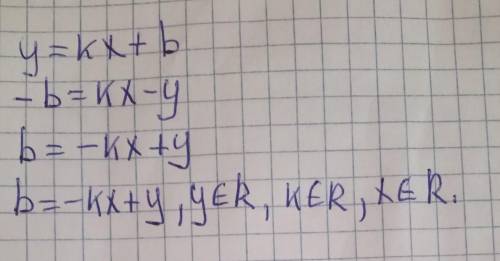 y=kx+b
-b=kx-y
b=-kx+y
b=-kx+y, y∈R, k∈R, x∈R.